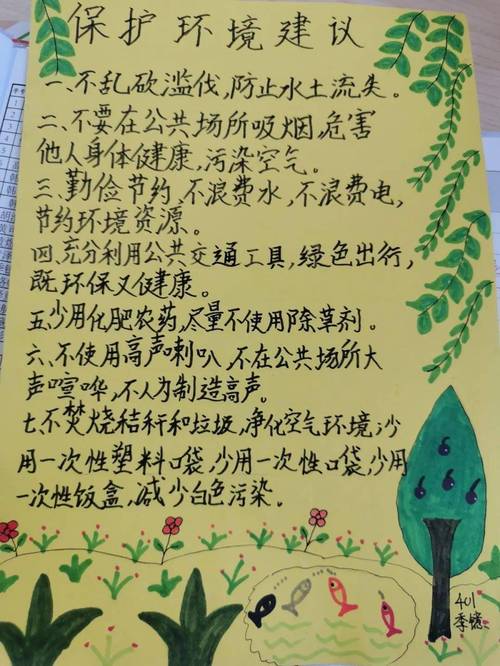 保护环境建议
一、不乱砍滥伐,防止水土流失。
二、不要在公共场所吸烟,危害
他人身体健康,污染空气。
三、勤俭节约、不浪费水,不浪费电,
节约环境资源。
四、充分利用公共交通工具,绿色出行,
既环保又健康。
五、少用化肥农药,尽量不使用除草剂。
六、不使用高声喇叭,不在公共场所大
声喧哗,不人为制造高声。
七、不焚烧秸秆和垃圾,净化空气环境;少
用一次性塑料口袋,少用一次性口袋,少用
一次性饭盒,减少白色污染。
401